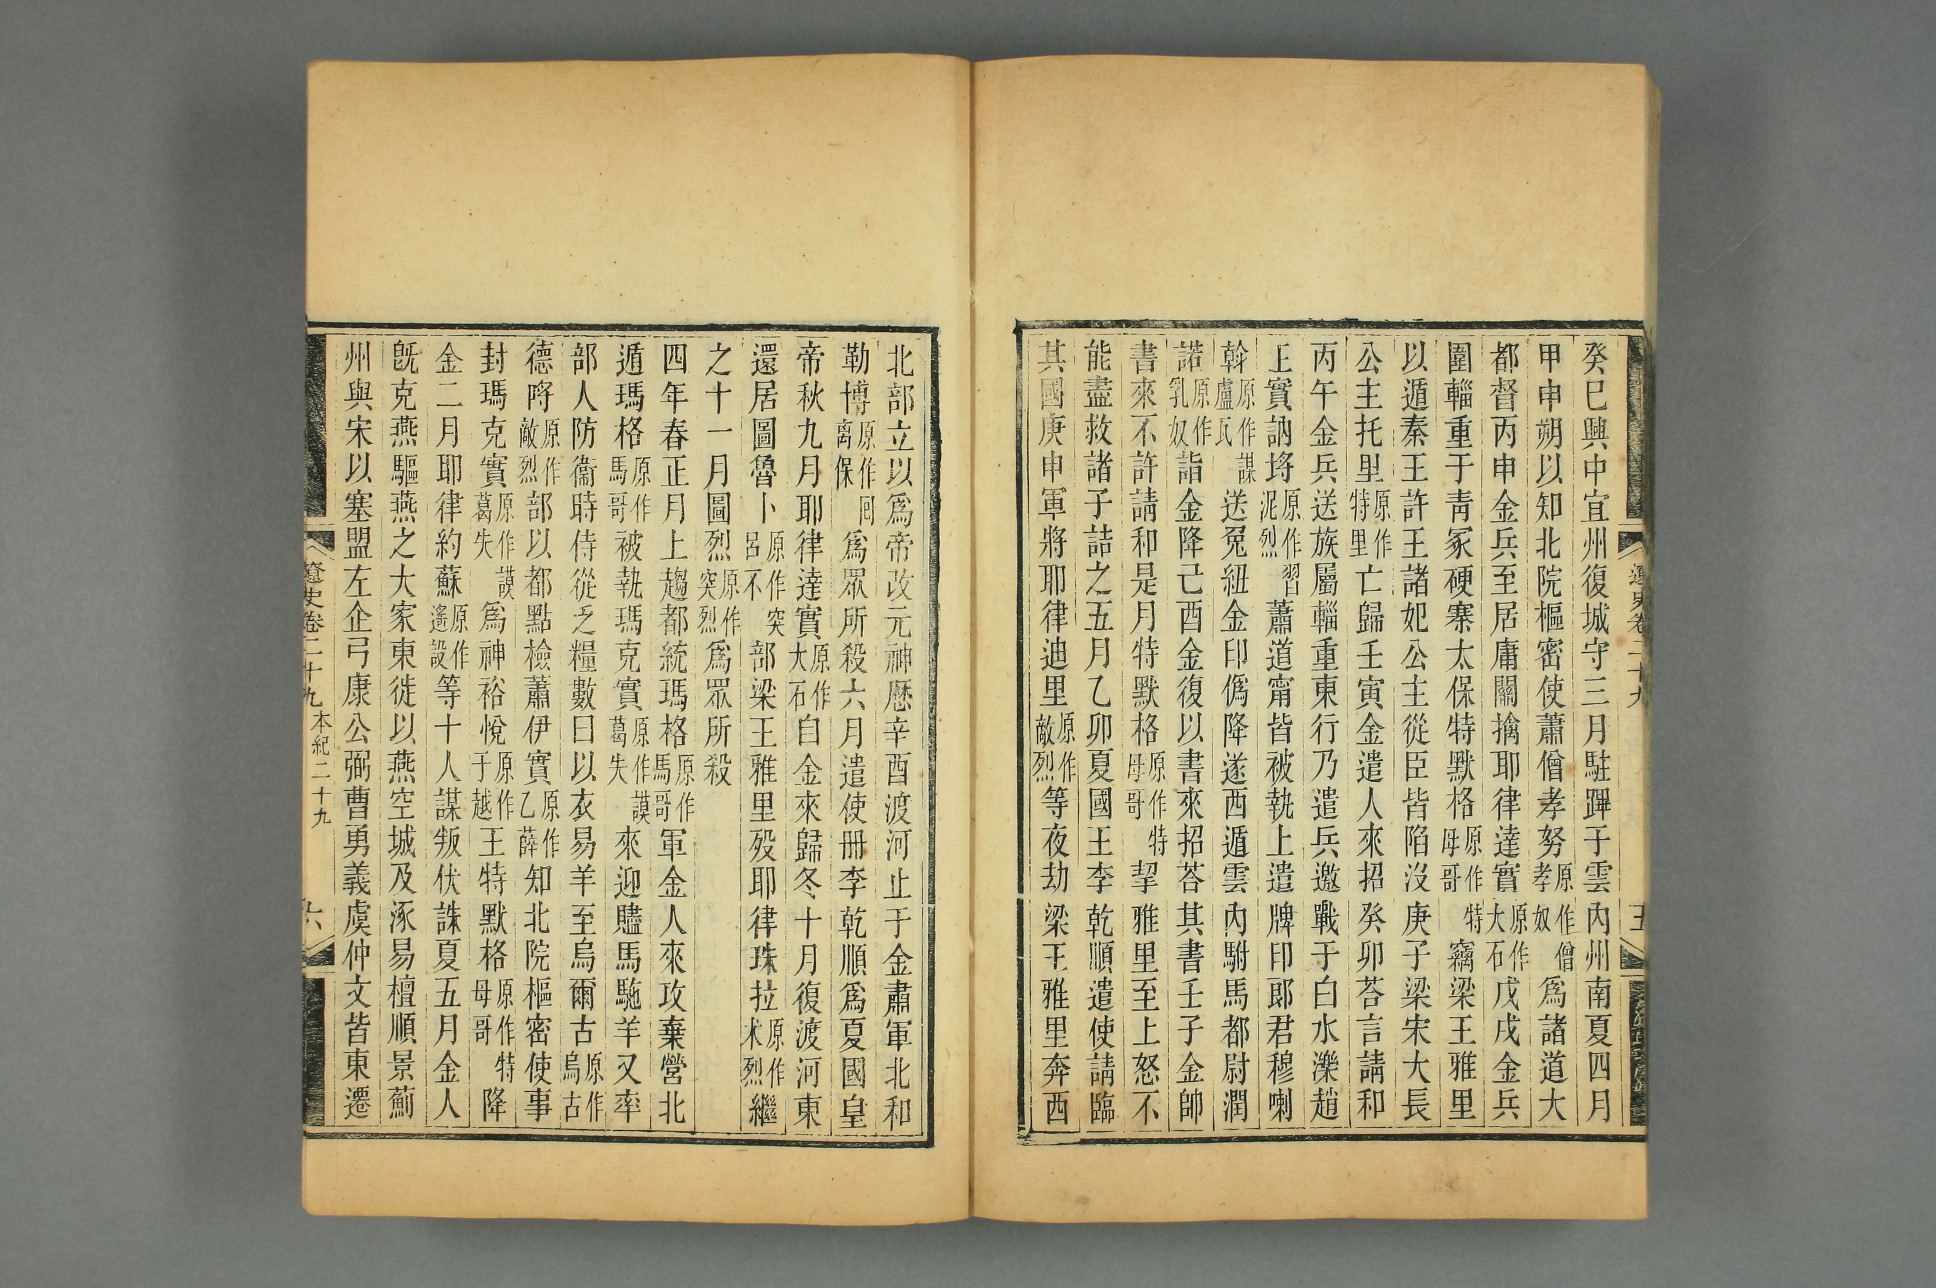 癸巳興中宜州復城守三月駐蹕于雲內州南夏四月
甲申朔以知北院樞密使蕭僧孝努原作僧孝奴為諸道大
都督丙申金兵至居庸關擒耶律達實原作大石戊戌金兵
圍輜重于青冢硬寨太保特默格原作特母哥竊梁王雅里
以遁秦王許王諸妃公主從臣皆陷沒庚子梁宋大長
公主托里原作特里亡歸壬寅金遣人來招癸卯荅言請和
丙午金兵送族屬輜重東行乃遣兵邀戰于白水濼趙
王實訥埓原作習泥烈蕭道甯皆被執上遣牌印郎君穆喇
斡原作謀盧瓦送兔紐金印偽降遂西遁雲內駙馬都尉潤
諾原作乳奴詣金降己酉金復以書來招荅其書壬子金帥
書來不許請和是月特默格原作特母哥挈雅里至上怒不
能盡救諸子詰之五月乙卯夏國王李乾順遣使請臨
其國庚申軍將耶律迪里原作敵烈等夜劫梁王雅里奔西
遼史卷二十九
五
北部立以為帝改元神歷辛酉渡河止于金肅軍北和
勒博原作回離保為眾所殺六月遣使冊李乾順為夏國皇
帝秋九月耶律達實原作大石自金來歸冬十月復渡河東
還居圖魯卜原作突呂不部梁王雅里歿耶律珠拉原作朮烈繼
之十一月圖烈原作突烈為眾所殺
四年春正月上趨都統瑪格原作馬哥軍金人來攻棄營北
遁瑪格原作馬哥被執瑪克實原作謨葛失來迎贐馬駞羊又率
部人防衞時侍從乏糧數日以衣易羊至烏爾古原作烏古
德哷原作敵烈部以都點檢蕭伊實原作乙薛知北院樞密使事
封瑪克實原作謨葛失為神裕悅原作于越王特默格原作特母哥降
金二月耶律約蘇原作遙設等十人謀叛伏誅夏五月金人
旣克燕驅燕之大家東徙以燕空城及涿易檀順景薊
州與宋以塞盟左企弓康公弼曹勇義虞仲文皆東遷
遼史卷二十九 本紀二十九
六